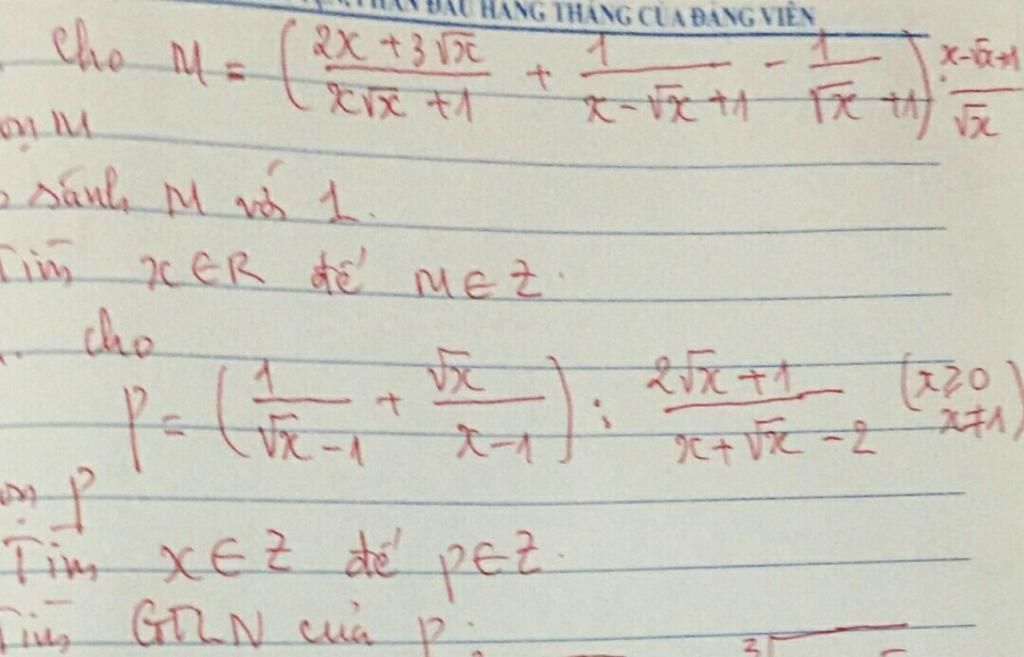 THẦN ĐẤU HÀNG THÁNG CỦA ĐẢNG VIÊN
Cho M = ( (2x + 3√x)/(x√x + 1) + 1/(x - √x + 1) - 1/(√x + 1) ) . (x-√x+1)/√x
ọn M
o sánh M với 1.
Tìm x ∈ R để M ∈ Z.
Cho
P = ( 1/(√x - 1) + √x/(x - 1) ) : (2√x + 1)/(x + √x - 2) (x ≥ 0 x ≠ 1)
ọn P
Tìm x ∈ Z để P ∈ Z.
Tìm GTLN của P.